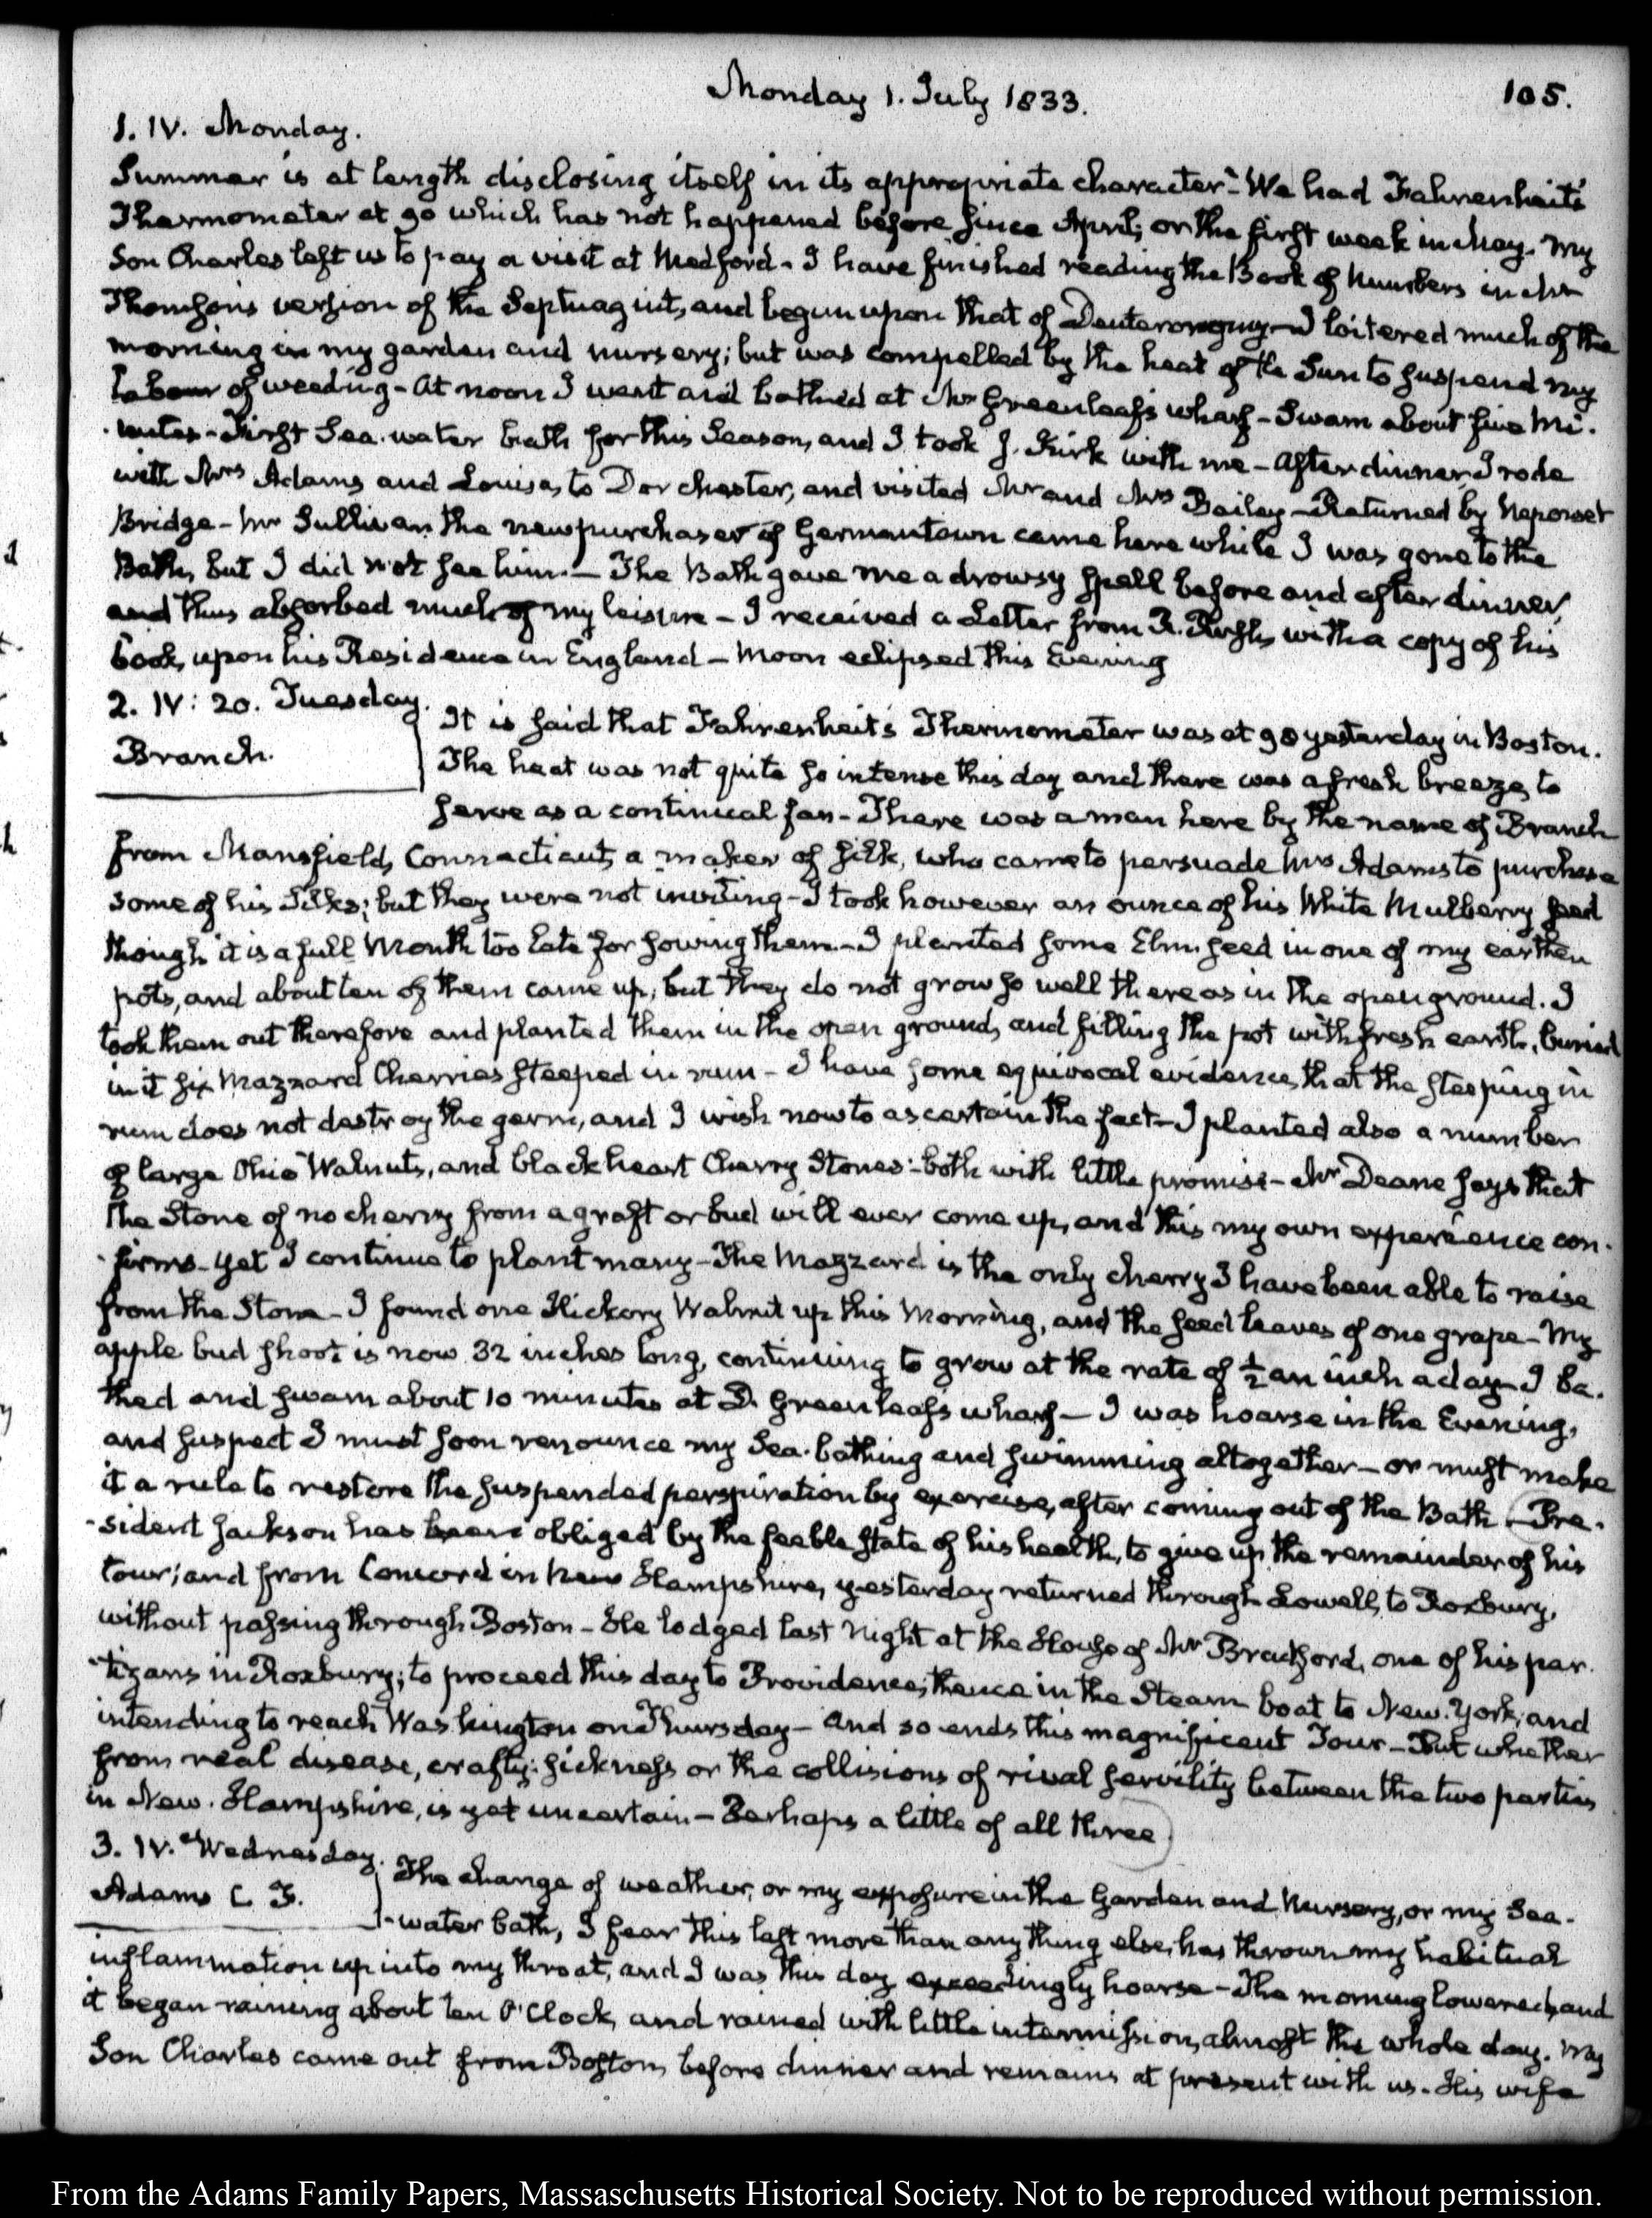 Monday 1. July 1833.
105.
1. IV. Monday.
Summer is at length disclosing itself in its appropriate character - We had Fahrenheit's
Thermometer at 90 which has not happened before since April, or the first week in May. My
Son Charles left us to pay a visit at Medford - I have finished reading the Book of Numbers in Mr
Thomson's version of the Septuagint, and begun upon that of Deuteronomy - I loitered much of the
morning in my garden and nursery; but was compelled by the heat of the Sun to suspend my
labour of weeding - At noon I went and bathed at Mr Greenleaf's wharf - Swam about five mi-
-nutes - First Sea-water bath for this Season, and I took J. Kirk with me - After dinner I rode
with Mrs Adams and Louisa, to Dorchester, and visited Mr and Mrs Bailey - Returned by Neponset
Bridge - Mr Sullivan the new purchaser of Germantown came here while I was gone to the
Bath, but I did not see him. - The Bath gave me a drowsy spell before and after dinner,
and thus absorbed much of my leisure - I received a Letter from R. Rush, with a copy of his
book, upon his Residence in England - Moon eclipsed this Evening
2. IV: 20. Tuesday.
Branch.
It is said that Fahrenheit's Thermometer was at 98 yesterday in Boston.
The heat was not quite so intense this day and there was a fresh breeze, to
serve as a continual fan - There was a man here by the name of Branch
from Mansfield, Connecticut, a maker of silk, who came to persuade Mrs Adams to purchase
some of his Silks; but they were not inviting - I took however an ounce of his White Mulberry seed
though it is a full Month too late for sowing them. - I planted some Elm seed in one of my earthen
pots, and about ten of them came up, but they do not grow so well there as in the open ground. I
took them out therefore and planted them in the open ground, and filling the pot with fresh earth, buried
in it six Mazzard Cherries steeped in rum - I have some equivocal evidence, that the steeping in
rum does not destroy the germ, and I wish now to ascertain the fact - I planted also a number
of large Ohio Walnuts, and blackheart Cherry Stones - both with little promise - Mr Deane says that
the Stone of no cherry from a graft or bud will ever come up, and this my own experience con-
-firms - yet I continue to plant many - The Mazzard is the only cherry I have been able to raise
from the Stone - I found one Hickory Walnut up this Morning, and the seed leaves of one grape - My
apple bud shoot is now 32 inches long, continuing to grow at the rate of ½ an inch a day - I ba-
thed and swam about 10 minutes at D. Greenleaf's wharf - I was hoarse in the Evening,
and suspect I must soon renounce my Sea-bathing and swimming altogether - or must make
it a rule to restore the suspended perspiration by exercise, after coming out of the Bath. - Pre-
-sident Jackson has been obliged by the feeble state of his health, to give up the remainder of his
tour; and from Concord in New Hampshire, yesterday returned through Lowell, to Roxbury,
without passing through Boston - He lodged last Night at the House of Mr Bradford, one of his par-
-tizans in Roxbury; to proceed this day to Providence; thence in the Steam-boat to New-York; and
intending to reach Washington on Thursday - And so ends this magnificent Tour - But whether
from real disease, crafty-sickness or the collisions of rival servility between the two parties
in New-Hampshire, is yet uncertain - Perhaps a little of all three
3. IV. Wednesday.
Adams C F.
The change of weather, or my exposure in the Garden and Nursery, or my Sea-
-water bath, I fear this last more than any thing else, has thrown my habitual
inflammation up into my throat, and I was this day exceedingly hoarse - The morning lowered, and
it began raining about ten O'Clock, and rained with little intermission, almost the whole day. My
Son Charles came out from Boston, before dinner and remains at present with us. His wife
From the Adams Family Papers, Massaschusetts Historical Society. Not to be reproduced without permission.